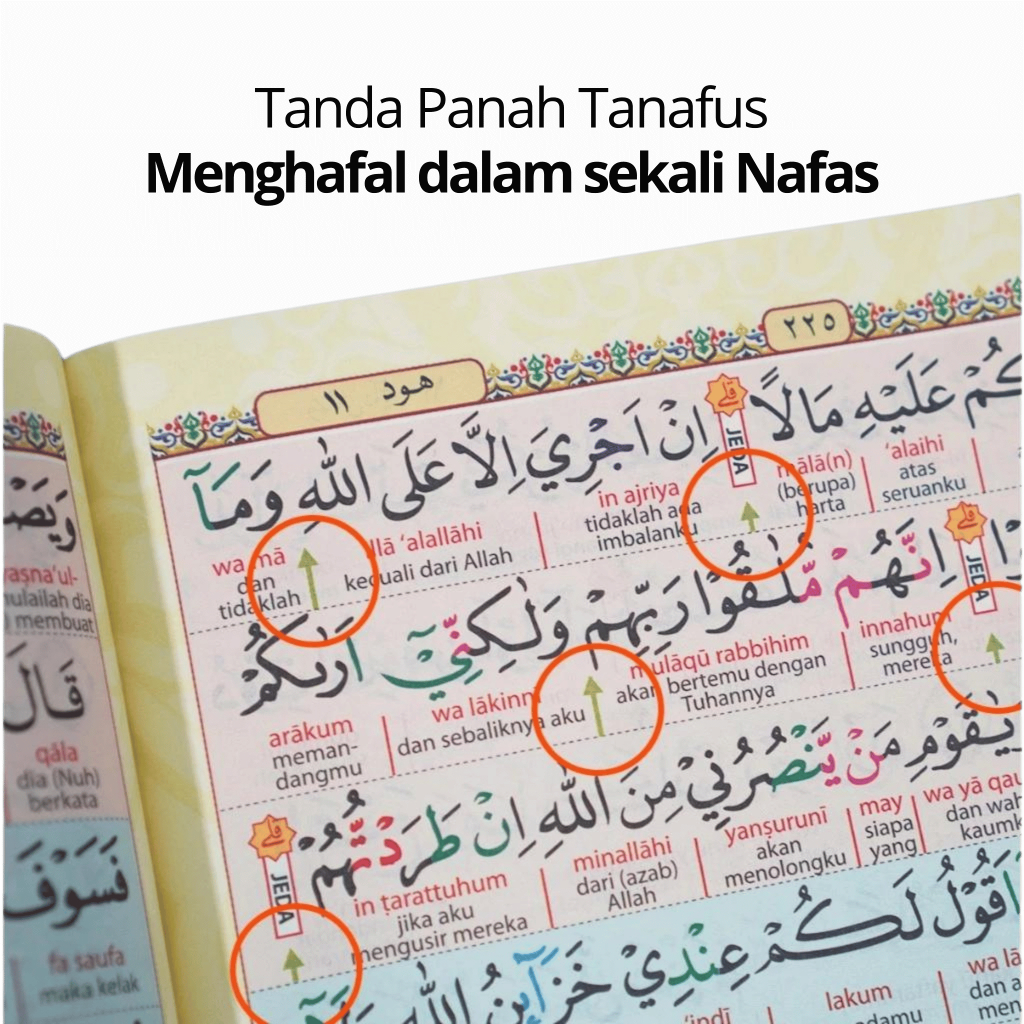 Tanda Panah Tanafus
Menghafal dalam sekali Nafas
٢٢٥
هود ١١
عَلَيْهِ مَالًا ۗ اِنْ اَجْرِيَ اِلَّا عَلَى اللّٰهِ وَمَآ
قلى JEDA
'alaihi
atas
seruanku
mālā(n)
(berupa)
harta
in ajriya
tidaklah ada
imbalanku
illā 'alallāhi
kecuali dari Allah
wa mā
dan
tidaklah
قلى JEDA
اِنَّهُمْ مُّلٰقُوْا رَبِّهِمْ وَلٰكِنِّيْٓ اَرٰىكُمْ
innahum
sungguh,
mereka
mulāqū rabbihim
akan bertemu dengan
Tuhannya
wa lākinnī
dan sebaliknya aku
arākum
meman-
dangmu
يٰقَوْمِ مَنْ يَّنْصُرُنِيْ مِنَ اللّٰهِ اِنْ طَرَدْتُّهُمْ
قلى JEDA
wa yā qau
dan wah
kaumk
may
siapa
yang
yanṣuruni
akan
menolongku
minallāhi
dari (azab)
Allah
in ṭarattuhum
jika aku
mengusir mereka
اَقُوْلُ لَكُمْ عِنْدِيْ خَزَاۤىِٕنُ اللّٰهِ
wa lā
dan a
men
lakum
'indī
yaṣna'ul-
mulailah dia
membuat
قَالَ
qāla
dia (Nuh)
berkata
فَسَوْفَ
fa saufa
maka kelak